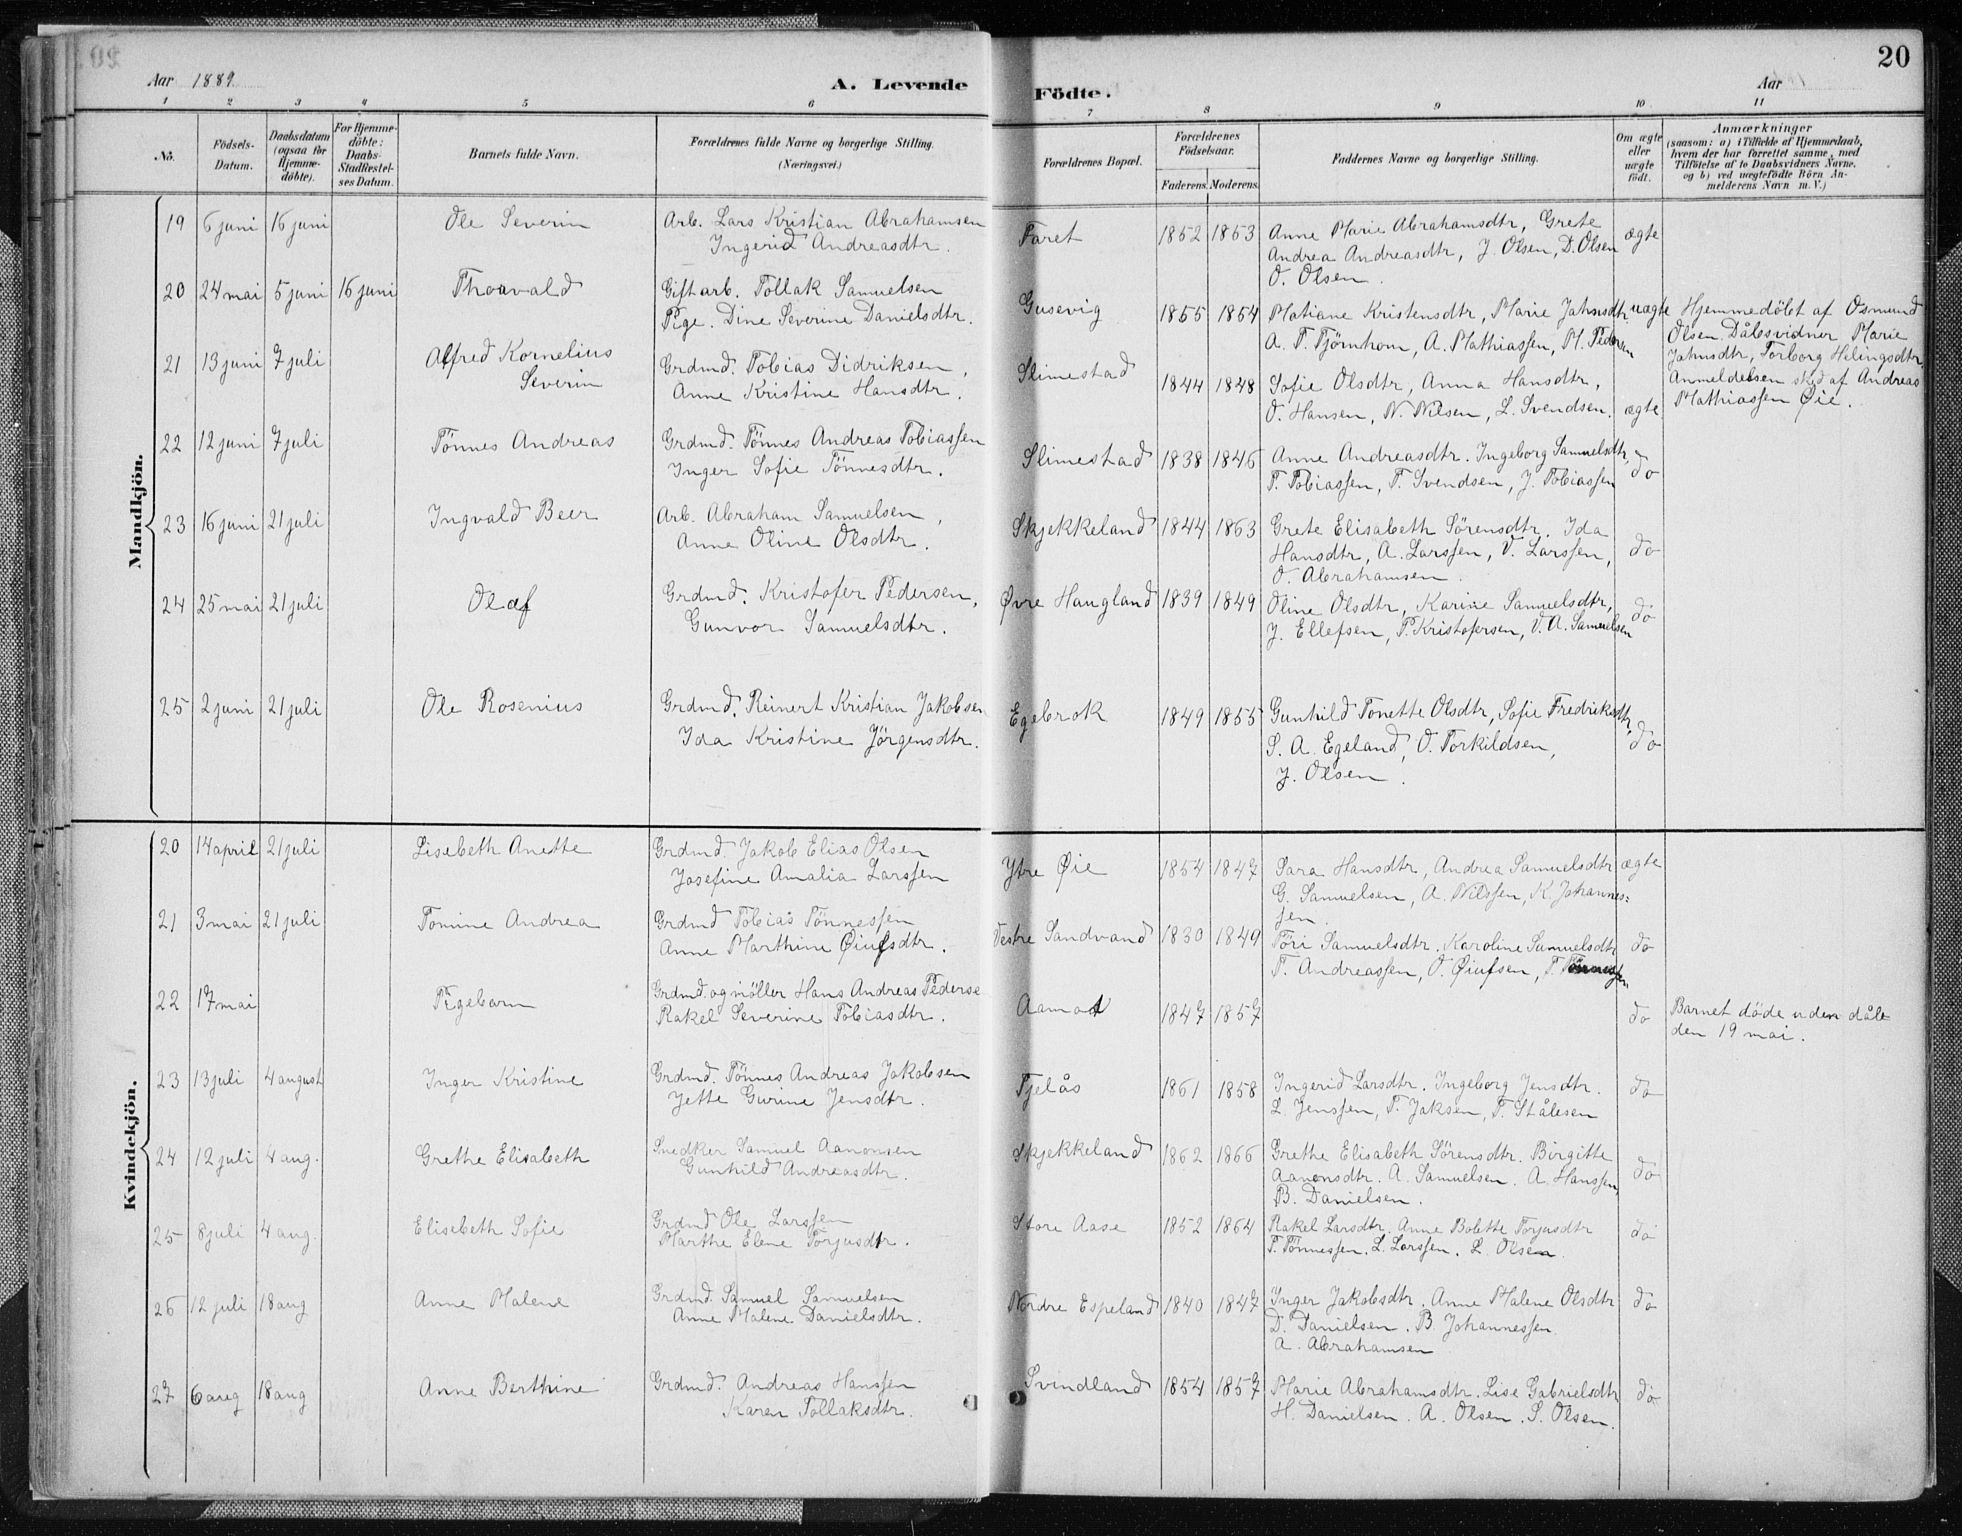 20
Aar 1889.
A. Levende Födte.
Aar
1 2 3 4 5 6 7 8 9 10 11
No.
Födsels-Datum.
Daabsdatum (ogsaa for Hjemme-döbte).
For Hjemme-döbte: Daabs-Stadfæstel-ses Datum.
Barnets fulde Navn.
Forældrenes fulde Navne og borgerlige Stilling. (Næringsvei.)
Forældrenes Bopæl.
Forældrenes Födselsaar.
Faderens. Moderens.
Faddernes Navne og borgerlige Stilling.
Om ægte eller uægte födt.
Anmærkninger
(saasom: a) i Tilfælde af Hjemmedaab,
hvem der har forrettet samme, med
Tilföielse af to Daabsvidners Navne.
og b) ved uægtefödte Börn An-
melderens Navn m. V.)
Mandkjön.
19 6 juni 16 juni Ole Severin Arb. Lars Kristian Abrahamsen Faret 1852 1853 Anne Marie Abrahamsdtr, Grete ægte
Ingerid Andreasdtr. Andrea Andreasdtr, J. Olsen, D. Olsen
O. Olsen.
20 24 mai 5 juni 16 juni Thorvald Gift arb. Tollak Samuelsen Gusevig 1855 1854 Matiane Kristensdtr, Marie Jahnsdtr. uægte Hjemmedöbt af Osmund
Pige. Dine Severine Danielsdtr. A. T. Tjörnhom, A. Mathiassen, M. Pedersen Olsen. Dåbsvidner Marie
Jahnsdtr, Torborg Helingsdtr.
Anmeldelsen sked af Andreas
Mathiassen Øie.
21 13 juni 7 juli Alfred Kornelius Grdmd. Tobias Didriksen, Slimestad 1844 1848 Sofie Olsdtr, Anna Hansdtr, ægte
Severin Anne Kristine Hansdtr. O. Hansen, N. Nilsen, L. Svendsen.
22 12 juni 7 juli Tönnes Andreas Grdmd. Tönnes Andreas Tobiassen Slimestad 1838 1846 Anne Andreasdtr. Ingeborg Samuelsdtr, do
Inger Sofie Tönnesdtr. T. Tobiassen, T. Svendsen, J. Tobiassen
23 16 juni 21 juli Ingvald Beer Arb. Abraham Samuelsen, Skjekkeland 1844 1863 Grete Elisabeth Sörensdtr. Ida do
Anne Oline Olsdtr. Hansdtr, A. Larssen, V. Larssen,
O. Abrahamsen.
24 25 mai 21 juli Olaf Grdmd. Kristofer Pedersen, Øvre Haugland 1839 1849 Oline Olsdtr, Karine Samuelsdtr, do
Gunvor Samuelsdtr. J. Ellefsen, P. Kristofersen, V. A. Samuelsen
25 2 juni 21 juli Ole Rosenius Grdmd. Reinert Kristian Jakobsen Egebrok 1849 1855 Gunhild Tonette Olsdtr, Sofie Fredriksdtr, do
Ida Kristine Jörgensdtr. S. A. Egeland, O. Torkildsen,
J. Olsen.
Kvindekjön.
20 14 april 21 juli Lisebeth Anette Grdmd. Jakob Elias Olsen Ytre Øie 1854 1847 Sara Hansdtr, Andrea Samuelsdtr ægte
Josefine Amalia Larssen G. Samuelsen, A. Nilssen, K. Johannes=
sen.
21 3 mai 21 juli Tomine Andrea Grdmd Tobias Tönnessen Vestre Sandvand 1830 1849 Töri Samuelsdtr. Karoline Samuelsdtr do
Anne Marthine Øiufsdtr. T. Andreassen, O. Øiufsen, T. Tönnessen
22 17 mai Pigebarn Grdmd. og möller Hans Andreas Pederse Aamot 1847 1857 do Barnet döde uden dåb
Rakel Severine Tobiasdtr. den 19 mai.
23 13 juli 4 august Inger Kristine Grdmd. Tönnes Andreas Jakobsen Tjelås 1861 1858 Ingerid Larsdtr. Ingeborg Jensdtr. do
Jette Gurine Jensdtr. L. Jenssen, T. Jaksen, T. Stålesen
24 12 juli 4 aug. Grethe Elisabeth Snedker Samuel Aanonsen Skjekkeland 1862 1866 Grethe Elisabeth Sörensdtr. Birgitte do
Gunhild Andreasdtr. Aanonsdtr. A. Samuelsen. A. Hanssen,
B. Danielsen.
25 8 juli 4 aug. Elisebeth Sofie Grdmd Ole Larssen Store Aase 1852 1864 Rakel Larsdtr. Anne Bolette Torjusdtr do
Marthe Elene Torjusdtr. T. Tönnessen. L. Larssen. L. Olsen.
26 12 juli 18 aug Anne Malene Grdmd. Samuel Samuelsen Nordre Espeland 1840 1847 Inger Jakobsdtr. Anne Malene Olsdtr do
Anne Malene Danielsdtr. D. Danielsen. B. Johannessen.
A. Abrahamsen
27 6 aug 18 aug Anne Berthine Grdmd. Andreas Hanssen Svindland 1854 1857 Marie Abrahamsdtr. Lise Gabrielsdtr do
Karen Tollaksdtr. H. Danielsen. A. Olsen. S. Olsen.